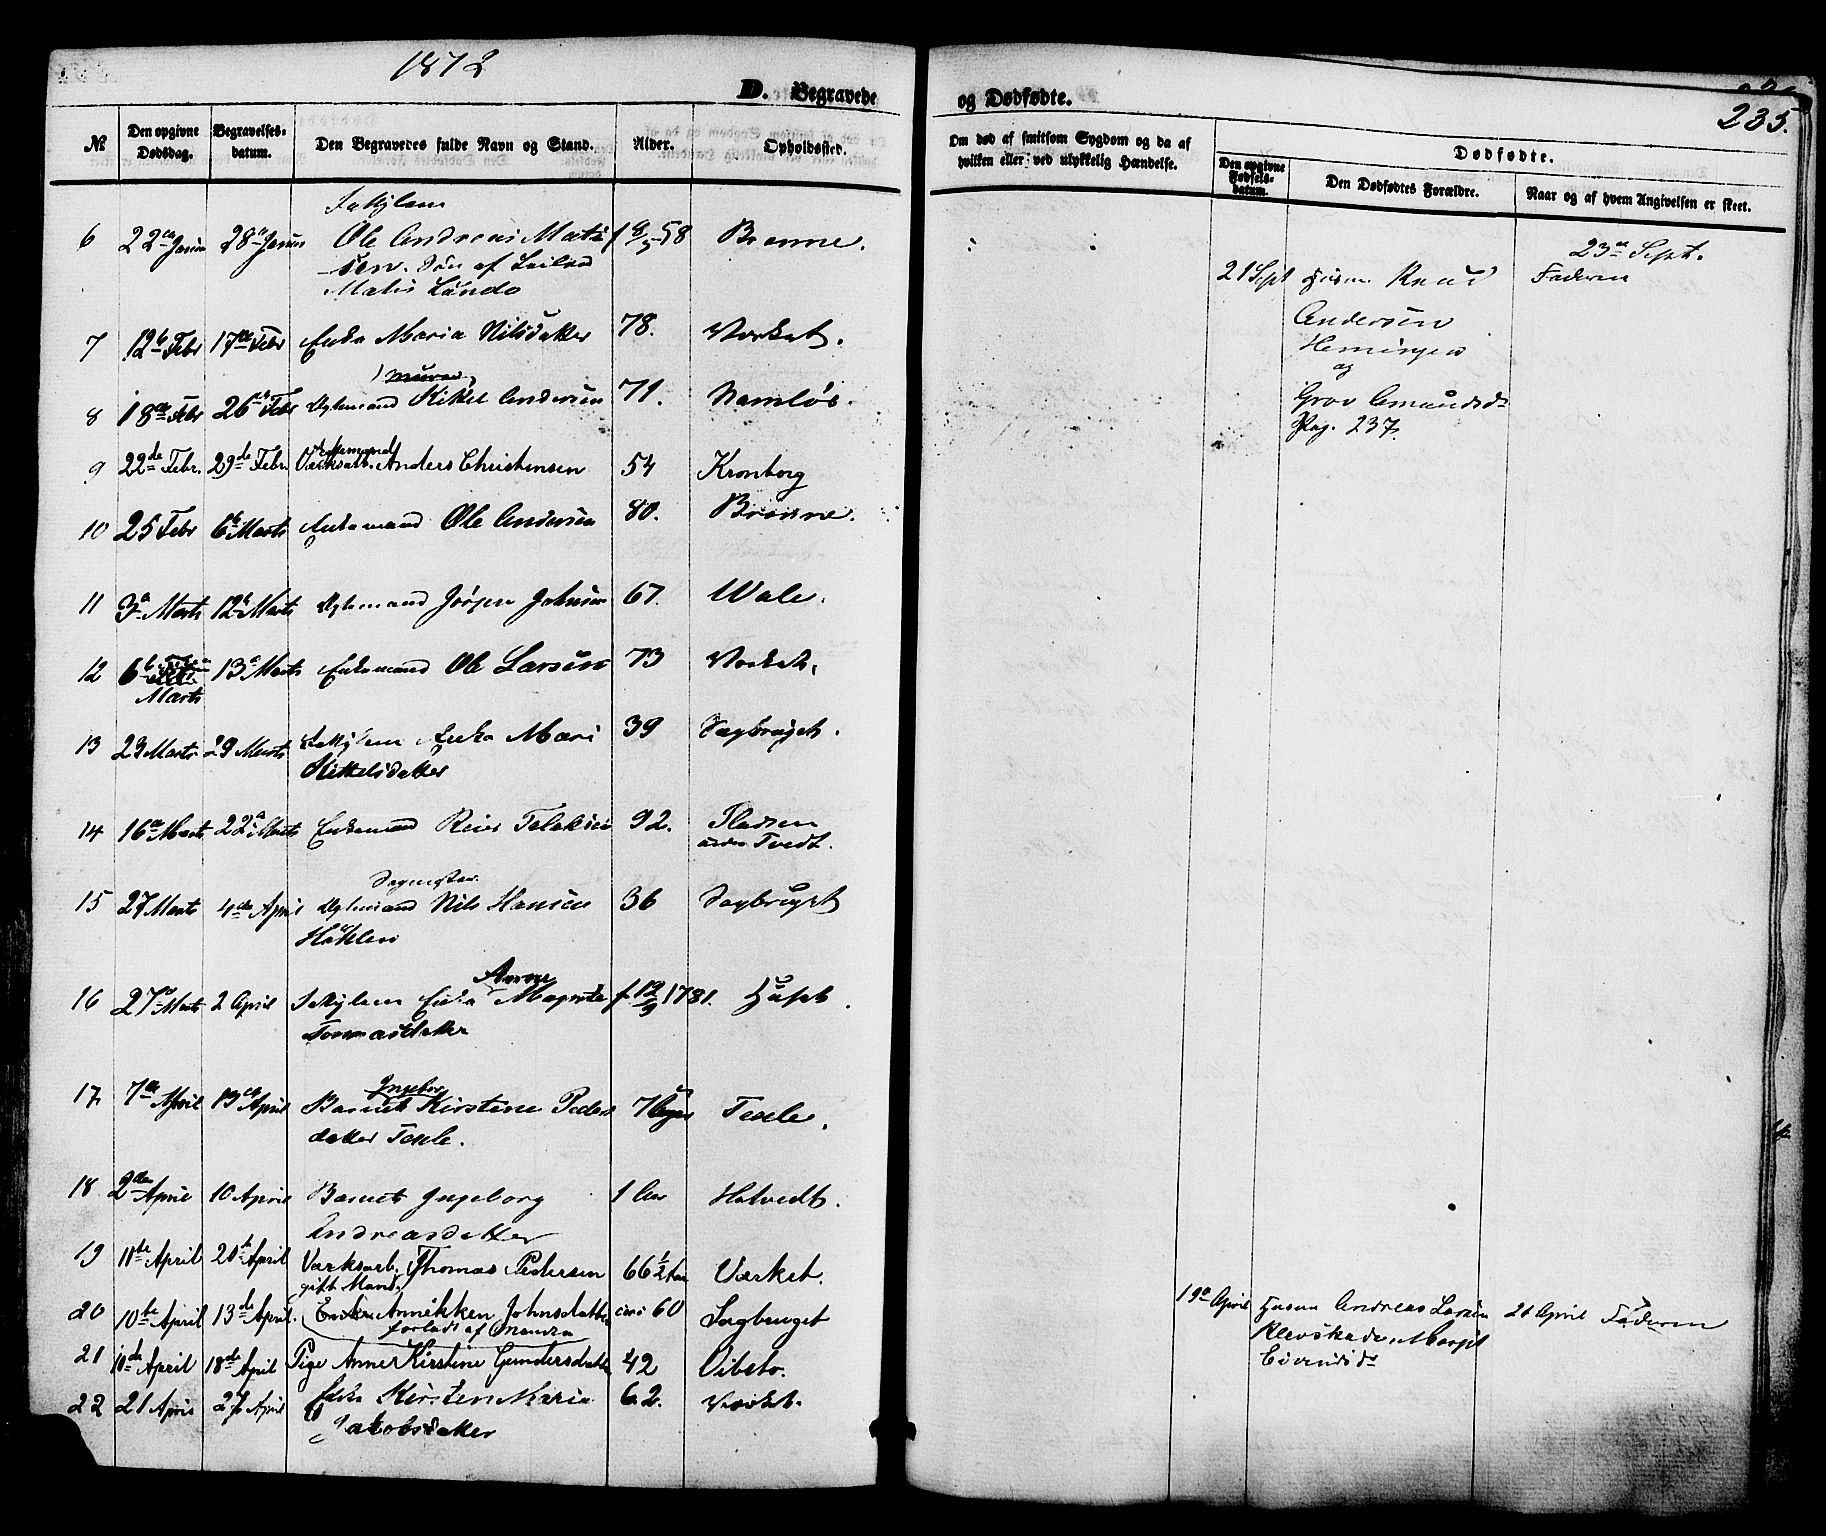 1872
D. Begravede
og Dødfødte.
235.
№
Den opgivne Dødsdag.
Begravelses-datum.
Den Begravedes fulde Navn og Stand.
Alder.
Opholdssted.
Om død af smitsom Sygdom og da af hvilken eller ved ulykkelig Hændelse.
Dødfødte.
Den opgivne Fødsels-datum.
Den Dødfødtes Forældre.
Naar og af hvem Angivelsen er skeet.
6 22de Janu 28de Janu Ole Andreas Mati 58
sen. Søn af
7 12te Febr 17de Febr Enke Maria Nilsdatter 78. Værket.
8 18de Febr 26de Febr Kittel Andersen 71. Namløs.
9 22de Febr. 29de Febr. Værksarb. Anders Christensen 54 Kronborg
10 25 Febr 6te Marts Enkemand Ole Andersen 80.
11 3de Marts 12te Marts Jørgen Johnsen 67. Wale.
12 6te 13de Marts Enkemand Ole Larsen 73 Værket.
Marts
13 23 Marts 29 Marts Enke Mari 39 Sagbruget.
Kittelsdatter
14 16de Marts 22de Marts Enkemand 92. Pladsen
under Tvedt.
Sagmester
15 27 Marts 4de April Nils Hansen 36 Sagbruget
Anne
16 27de Marts 2 April Enke Magrete f. 12/9 1781.
Tommasdatter
Ingebor
17 7de April 13de April Barnet Kirstine Peders 7 Uger Texle.
datter Texle.
18 2den April 10 April Barnet Ingeborg 1 Aar Hatvedt.
Andreasdatter
19 11te April 20de April Værksarb. Thomas Pedersen 66 1/2 Værket.
gift Mand.
20 10te April 13de April. Enken Annikken Johnsdatter 60 Sagbruget
forladt af
21 10de April 18de April Pige Anne Kirstine Gundersdatter 42 Vibeto.
22 21 April 27 April Enke Kirsten Maria 62. Værket.
Jakobsdatter
23de Sept.
21 Sept Husm. Knud Faderen
Andersen
og
Amundsd.
Pag. 237.
19de April Husm Andreas Larsen 21 April Faderen
Klevskaden Margit